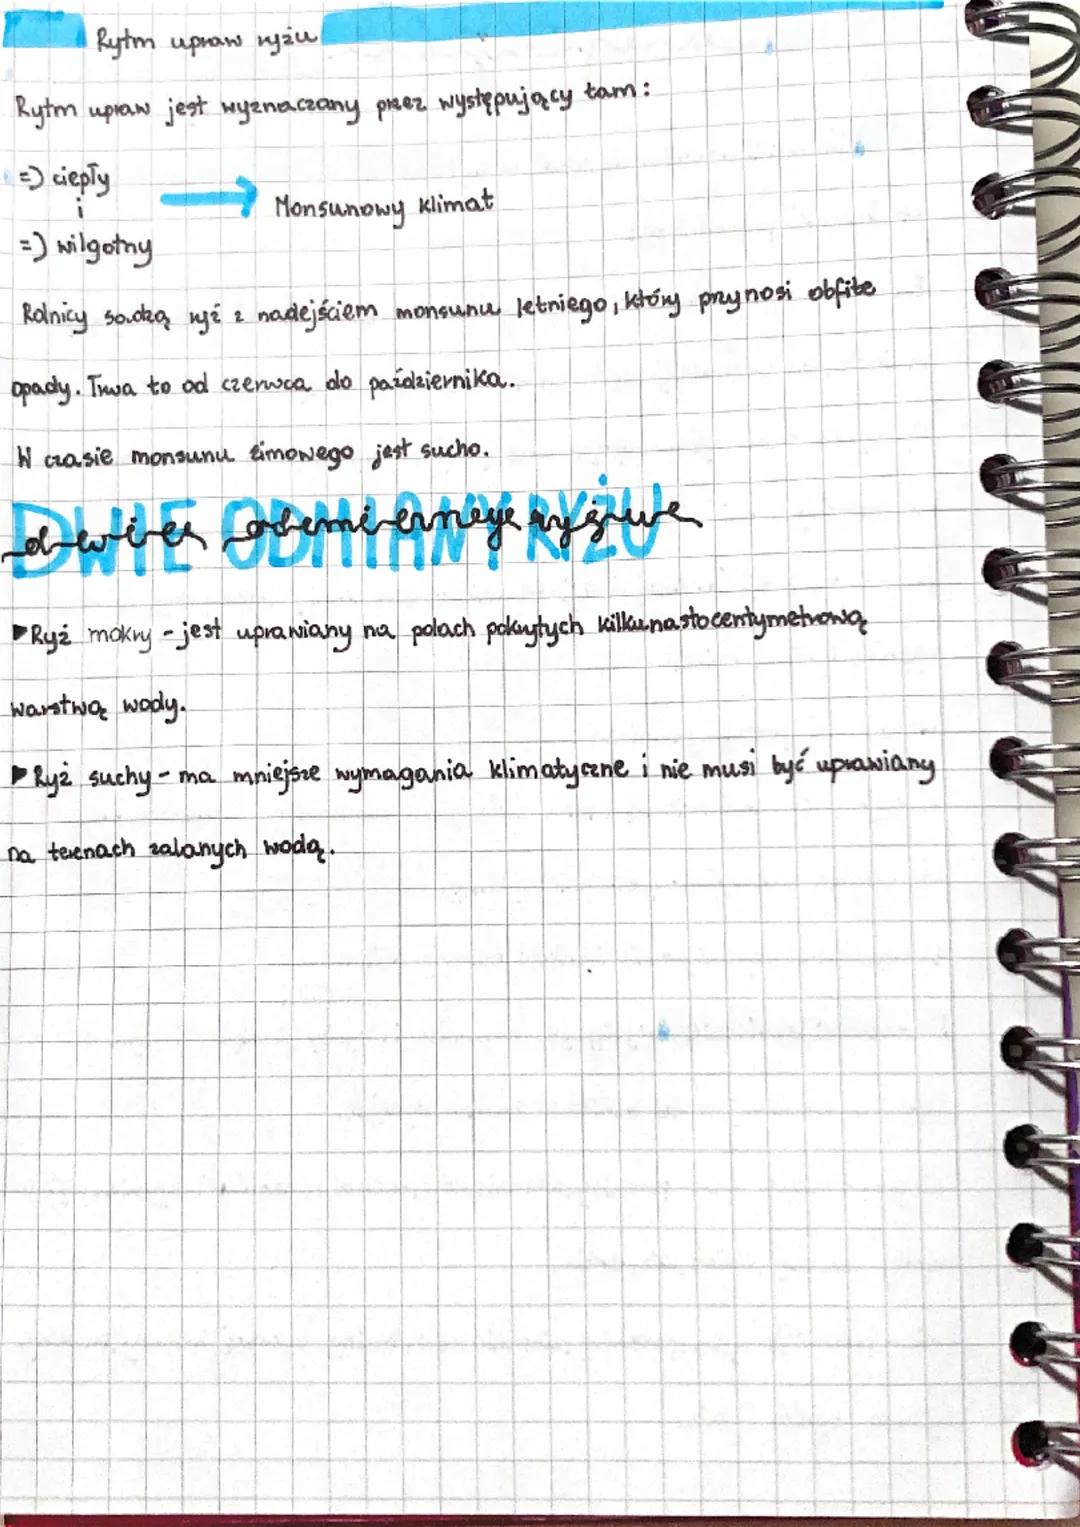 Rytm upraw ryżu
Rytm upraw jest wyznaczany przez występujący tam:
=) ciepły
i
=) wilgotny
Monsunowy klimat
Rolnicy sadzą ryż z nadejściem monsunu letniego, który przynosi obfite
opady. Trwa to od czerwca do października.
W czasie monsunu zimowego jest sucho.
DWIE ODMIANY RYŻU
▶Ryż mokry - jest uprawiany na polach pokrytych kilkunastocentymetrową
warstwą wody.
▶Ryż suchy - ma mniejsze wymagania klimatyczne i nie musi być uprawiany
na terenach zalanych wodą.